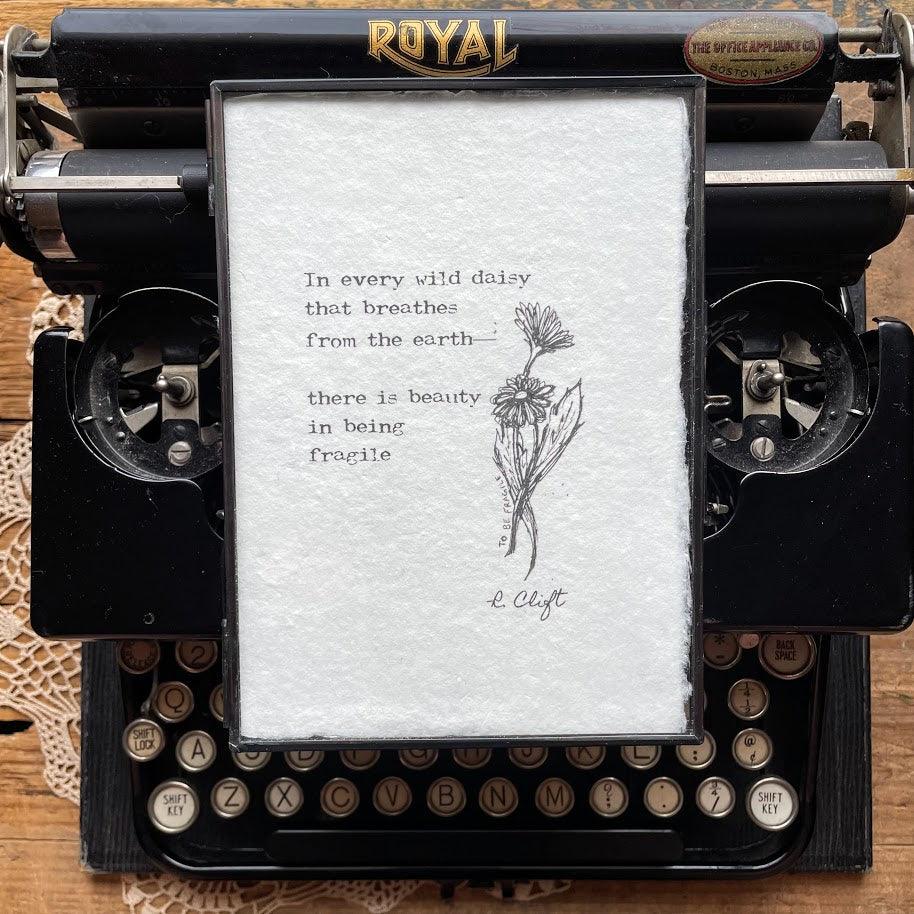 ROYAL
THE OFFICE APPLIANCE CO.
BOSTON, MASS
In every wild daisy
that breathes
from the earth—
there is beauty
in being
fragile
TO BE FRAGILE
R. Clift
2
* -
BACK SPACE
Q
SHIFT LOCK
A
@ ¢
SHIFT KEY
Z X C V B N M
SHIFT KEY